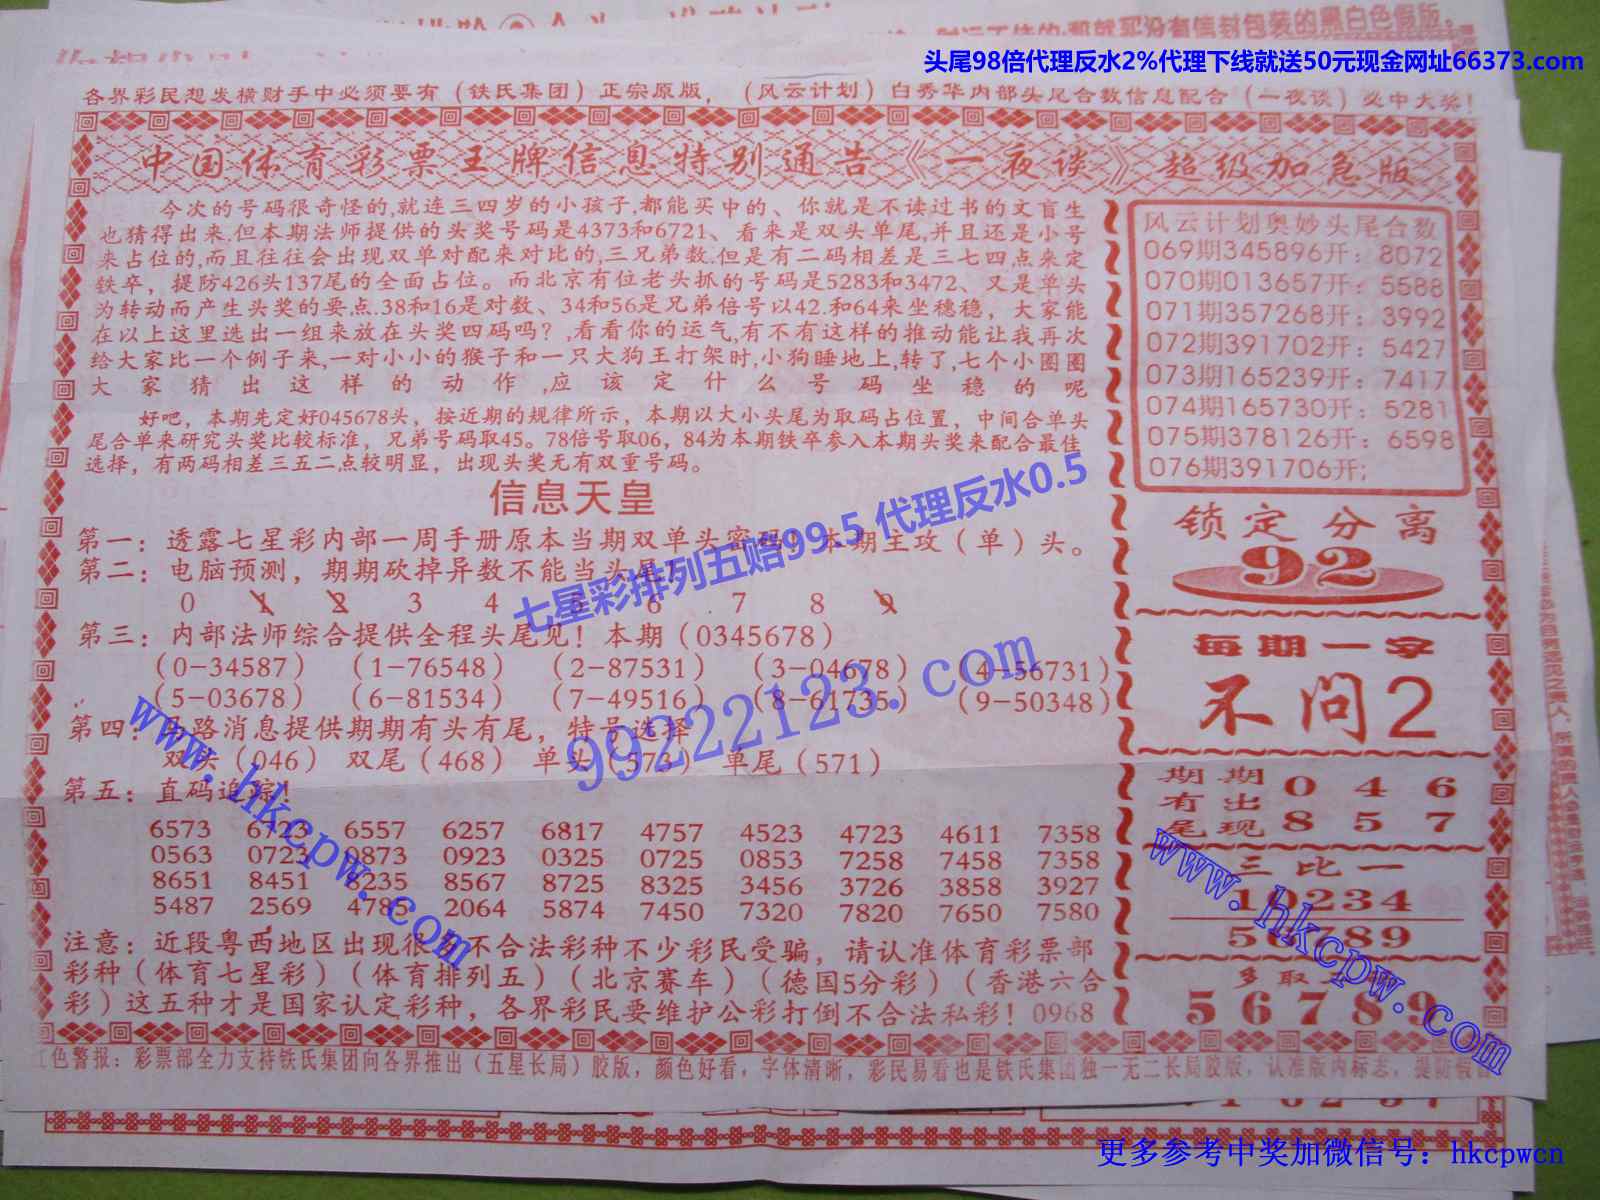 头尾98倍代理反水2%代理下线就送50元现金网址66373.com
各界彩民想发横财手中必须要有（铁氏集团）正宗原版，（风云计划）白秀华内部头尾合数信息配合（一夜谈）必中大奖！
中国体育彩票王牌信息特别通告《一夜谈》超级加急版
今次的号码很奇怪的,就连三四岁的小孩子,都能买中的、你就是不读过书的文盲生
也猜得出来.但本期法师提供的头奖号码是4373和6721、看来是双头单尾,并且还是小号
来占位的,而且往往会出现双单对配来对比的,三兄弟数.但是有二码相差是三七四点来定
铁卒，提防426头137尾的全面占位。而北京有位老头抓的号码是5283和3472、又是单头
为转动而产生头奖的要点.38和16是对数、34和56是兄弟倍号以42.和64来坐穗稳，大家能
在以上这里选出一组来放在头奖四码吗？,看看你的运气,有不有这样的推动能让我再次
给大家比一个例子来,一对小小的猴子和一只大狗王打架时,小狗睡地上,转了,七个小圈圈
大家猜出这样的动作,应该定什么号码坐稳的呢
好吧，本期先定好045678头，按近期的规律所示，本期以大小头尾为取码占位置，中间合单头
尾合单来研究头奖比较标准，兄弟号码取45。78倍号取06，84为本期铁卒参入本期头奖来配合最佳
选择，有两码相差三五二点较明显，出现头奖无有双重号码。
信息天皇
第一：透露七星彩内部一周手册原本当期双单头密码！本期主攻（单）头。
第二：电脑预测，期期砍掉异数不能当头尾！
0 1 2 3 4 5 6 7 8 9
第三：内部法师综合提供全程头尾见！本期（0345678）
（0-34587）（1-76548）（2-87531）（3-04678）（4-56731）
（5-03678）（6-81534）（7-49516）（8-61735）（9-50348）
第四：马路消息提供期期有头有尾，特号选择
双头（046）双尾（468）单头（573）单尾（571）
第五：直码追踪！
6573 6723 6557 6257 6817 4757 4523 4723 4611 7358
0563 0723 0873 0923 0325 0725 0853 7258 7458 7358
8651 8451 8235 8567 8725 8325 3456 3726 3858 3927
5487 2569 4785 2064 5874 7450 7320 7820 7650 7580
注意：近段粤西地区出现很多不合法彩种不少彩民受骗，请认准体育彩票部
彩种（体育七星彩）（体育排列五）（北京赛车）（德国5分彩）（香港六合
彩）这五种才是国家认定彩种，各界彩民要维护公彩打倒不合法私彩！0968
风云计划奥妙头尾合数
069期345896开：8072
070期013657开：5588
071期357268开：3992
072期391702开：5427
073期165239开：7417
074期165730开：5281
075期378126开：6598
076期391706开；
锁定分离
92
每期一字
不问2
期期 0 4 6
有出
尾现 8 5 7
三比一
10234
56789
多取
56789
色警报：彩票部全力支持铁氏集团向各界推出（五星长局）胶版，颜色好看，字体清晰，彩民易看也是铁氏集团独一无二长局胶版，认准版内标志，提防假冒
七星彩排列五赔99.5 代理反水0.5
99222123.com
www.hkcpw.com
www.hkcpw.com
更多参考中奖加微信号：hkcpwcn